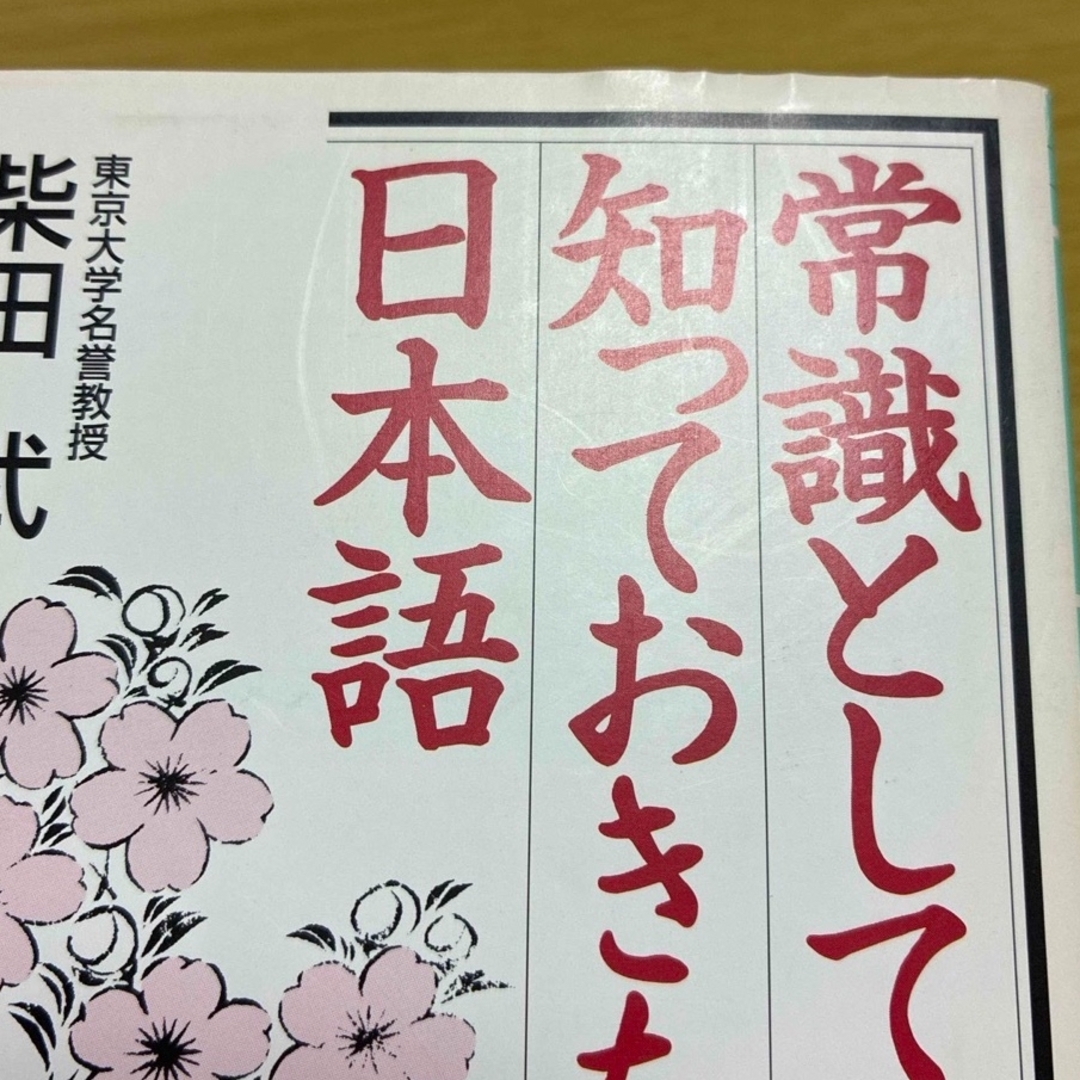 常識として
知っておき
日本語
東京大学名誉教授
柴田